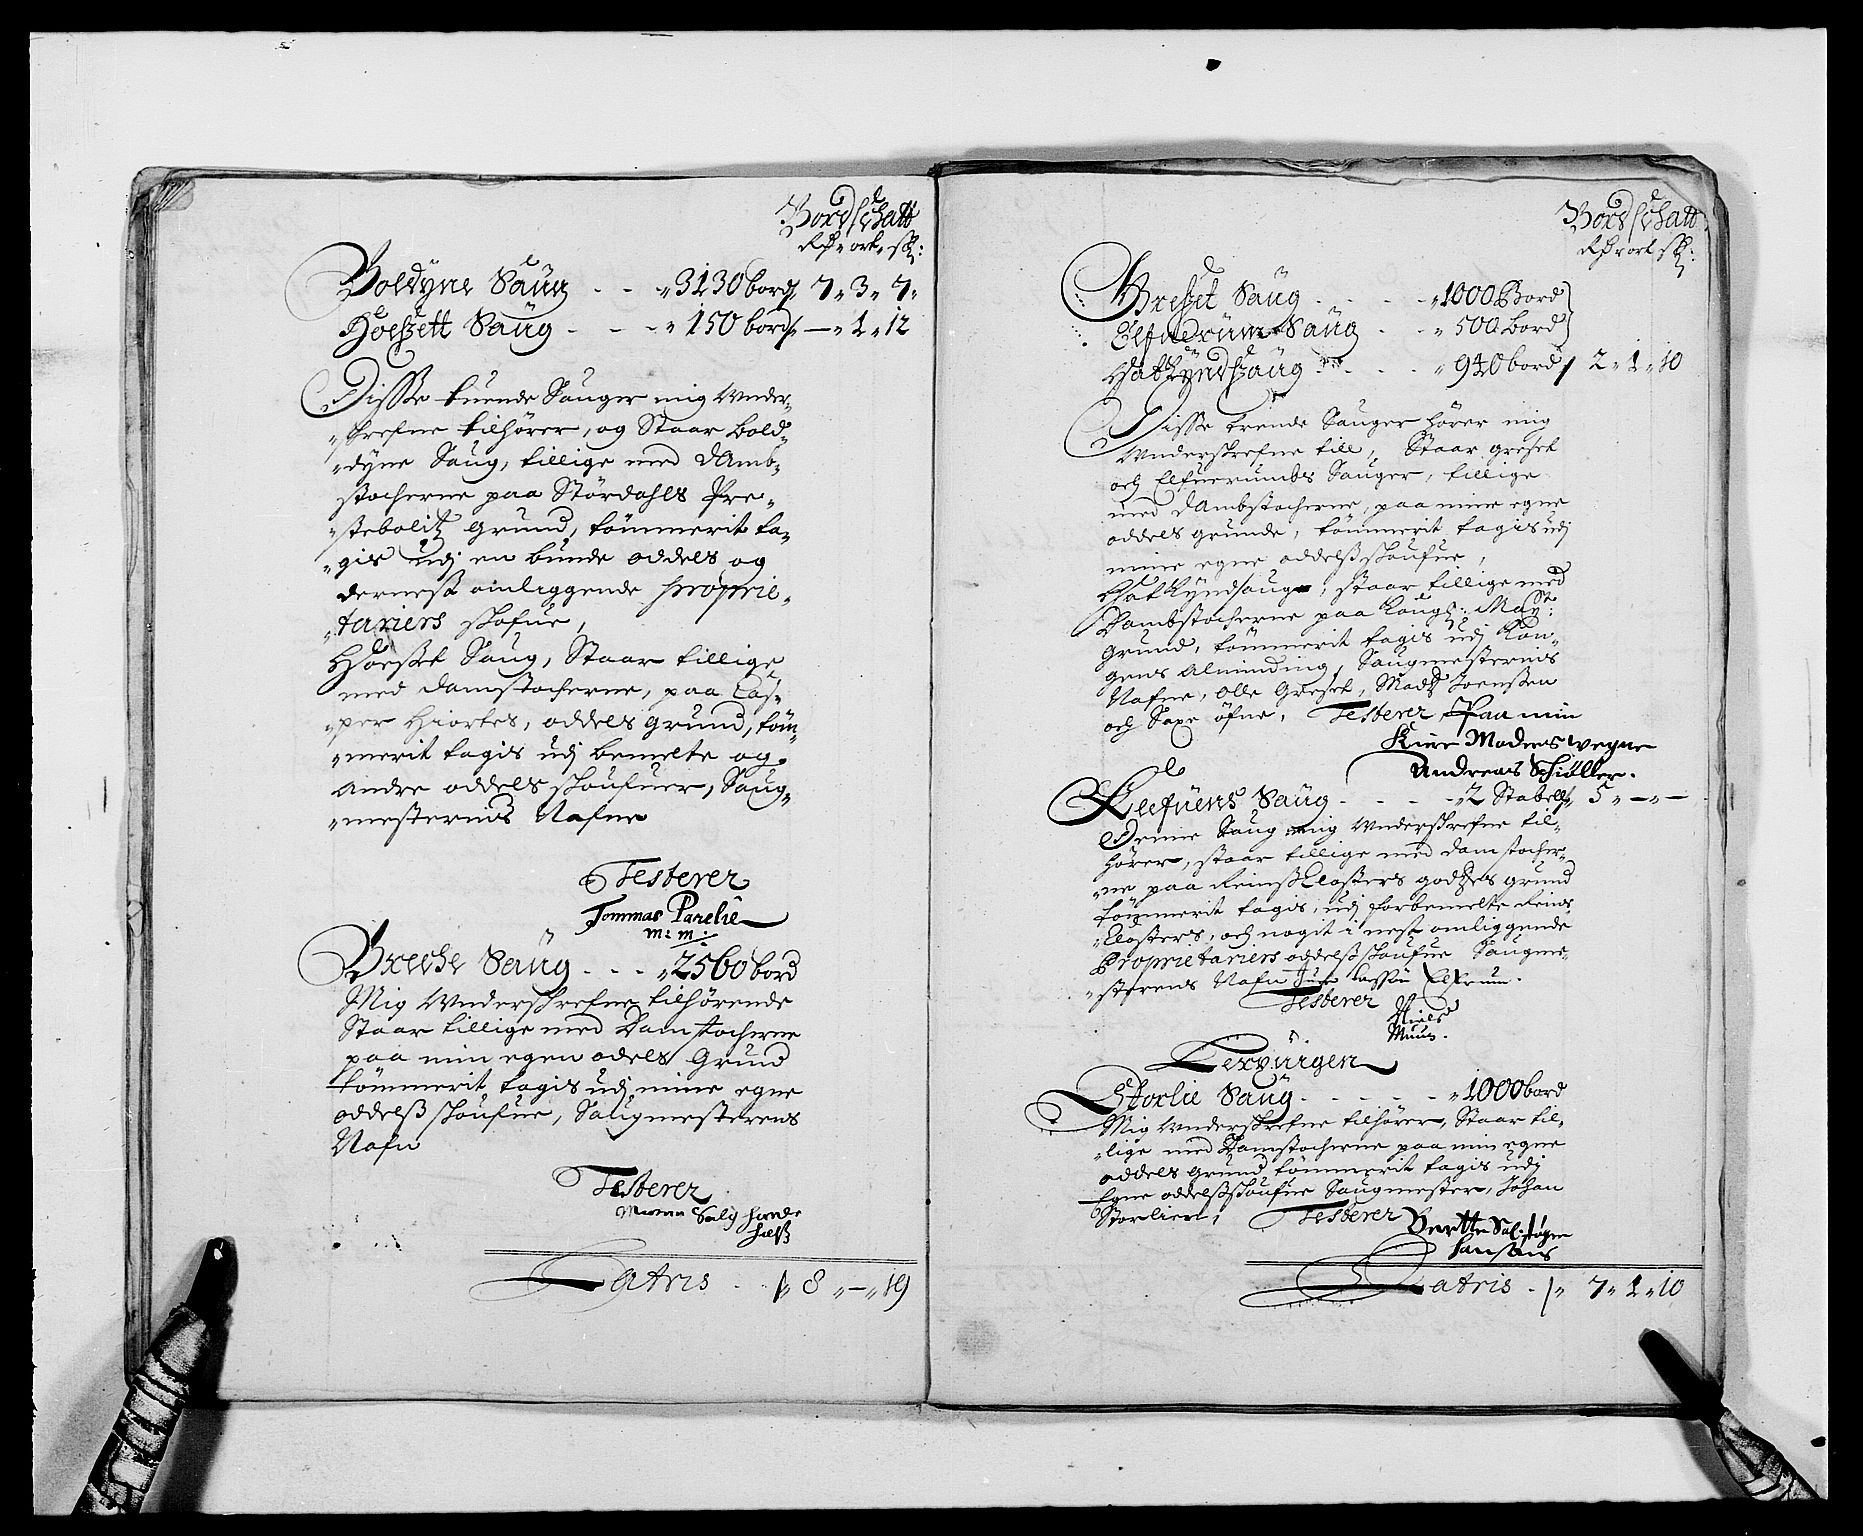 Bordschatt
Rdr ort sk:
Boldyne Saug - - - 3130 bord, 7, 3, 7,
Hoeszett Saug - - - 150 bord, — 1, 12
Disse tuende Sauger mig Under-
skrefne tilhører, og Staar bold-
dyne Saug, tillige med dAmb-
stocherne paa Stördahls Pre-
stebolitz grund, tömmerit ta-
gis udj en bunde oddels og
dernest omliggende proprie-
tariers skofue,
Hoeszet Saug, Staar tillige
med damstocherne, paa Cas-
per Hiortes, oddels grund, töm-
merit tagis udj bemelte og
andre oddels skoufuer, Saug-
mesternis Nafne
Testerer
Tommas Parelie
m: m:
Brecche Saug - - - 2560 bord
Mig Underskrefne tilhørende
Staar tillige med Damstocherne
paa min egen odels Grund
tömmerit tagis udj mine egne
oddelß skoufue, Saugmesterens
Nafn
Testerer
Salig
Latris - 8, —, 19
Bordschatt
Rdr ort sk:
Greszet Saug - - - - 1000 Bord
Elfuerum Saug - - 500 bord
Hoeszett 940 bord, 2, 1, 10
Disse trende Sauger hörer mig
Underskrefne till, Staar greset
och Elfuerumbs Sauger, tillige
med dAmbstocherne, paa mine egne
oddels grunde, tömmerit tagis udj
mine egne oddelß skoufue,
staar tillige med
Dambstocherne paa Kong: Mayst:
grund, tömmerit tagis udj Kon-
gens Alminding, Saugmesternis
Nafne, Olle Greset, Madz Joenssen
och Saxe öfne, Testerer Paa min
Kiere Moders wegne
Andreas Schiøller.
Leefuens Saug - - - - 2 Stabell, 5, —, —
Denne Saug mig Underskrefne til-
hörer, staar tillige med damstocher-
ne paa Reinsklosters godzes grund
tömmerit tagis, udj forbemelte Reins-
klosters, och nogit i nest omliggende
Proprietariers oddelß skoufue Saugme-
sterens Nafn
Testerer
Niels
Muus.
Lexvürgen
Storlie Saug - - - - - 1000 bord
Mig Underskrefne tilhører, Staar til-
lige med Damstocherne paa min egne
oddels grund tömmerit tagis udj
Egne oddelßskoufue Saugmester, Johan
Storlien, Testerer Berette Sal:
Hansens
Latris - 7, 1, 10